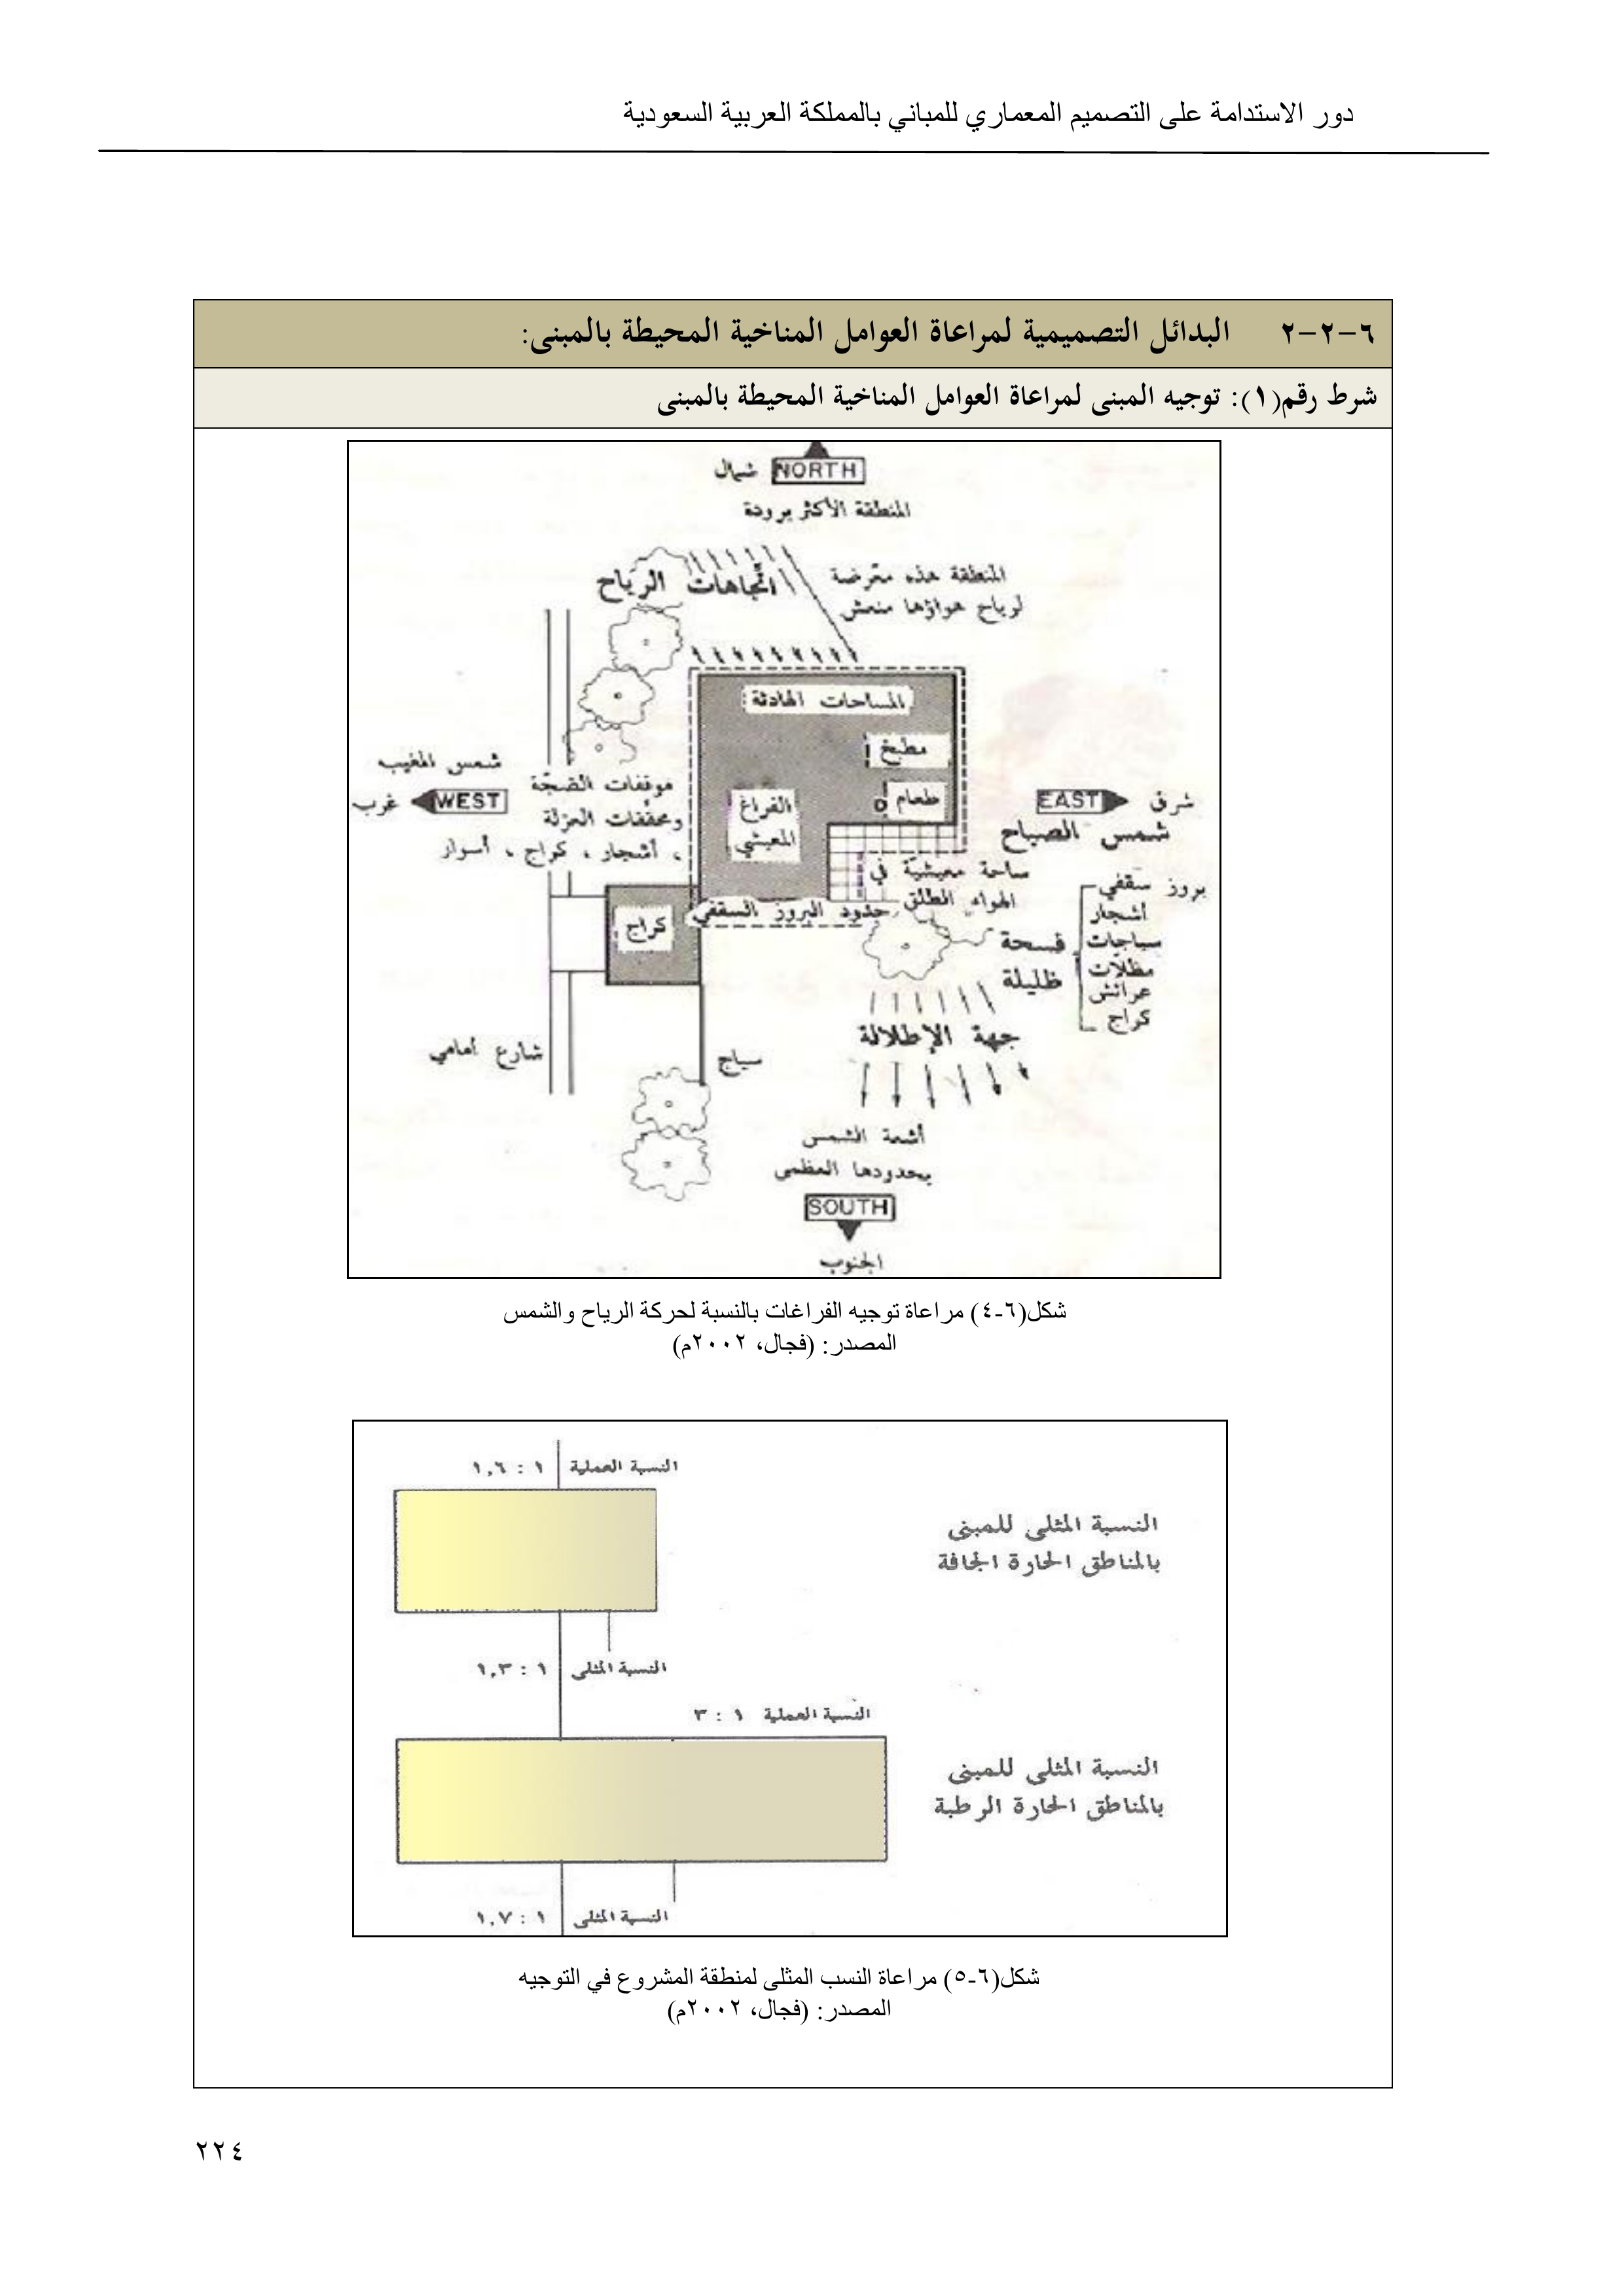 دور الاستدامة على التصميم المعماري للمباني بالمملكة العربية السعودية
٦-٢-٢ البدائل التصميمية لمراعاة العوامل المناخية المحيطة بالمبنى:
شرط رقم(١): توجيه المبنى لمراعاة العوامل المناخية المحيطة بالمبنى
شمال NORTH
المنطقة الأكثر برودة
المنطقة هذه معرضة
لرياح هواؤها منعش
اتجاهات الرياح
المساحات الهادئة
مطبخ
طعام
الفراغ
المعيشي
شمس المغيب
غرب WEST
موقفات الضجّة
ومحقّقات العزلة
، أشجار ، كراج ، أسوار
شرق EAST
شمس الصباح
ساحة معيشيّة في
الهواء الطلق
حدود البروز السقفي
كراج
فسحة
ظليلة
بروز سقفي
أشجار
سياجات
مظلات
عرائش
كراج
جهة الإطلالة
شارع أمامي
سياج
أشعة الشمس
بحدودها العظمى
SOUTH
الجنوب
شكل(٦-٤) مراعاة توجيه الفراغات بالنسبة لحركة الرياح والشمس
المصدر: (فجال، ٢٠٠٢م)
النسبة العملية ١ : ١,٦
النسبة المثلى للمبنى
بالمناطق الحارة الجافة
النسبة المثلى ١ : ١,٣
النسبة العملية ١ : ٣
النسبة المثلى للمبنى
بالمناطق الحارة الرطبة
النسبة المثلى ١ : ١,٧
شكل(٦-٥) مراعاة النسب المثلى لمنطقة المشروع في التوجيه
المصدر: (فجال، ٢٠٠٢م)
٢٢٤